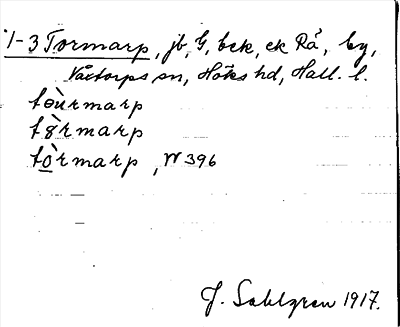 1-3 Tormarp, jb, G, bek, ek Rå, by,
Våxtorps sn, Höks hd, Hall. l.
tòurmarp
tòrmarp
tòrmarp, W 396
J. Sahlgren 1917.